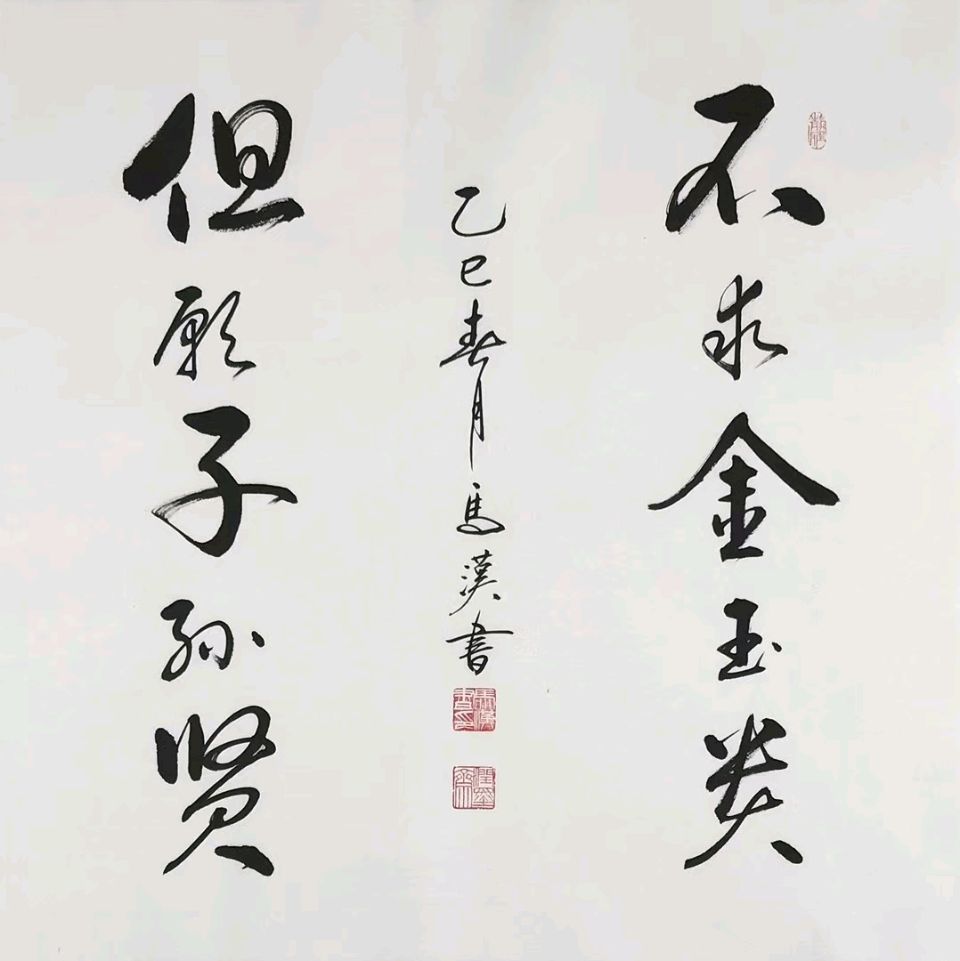 不求金玉贵
但愿子孙贤
乙巳春月馬漢書